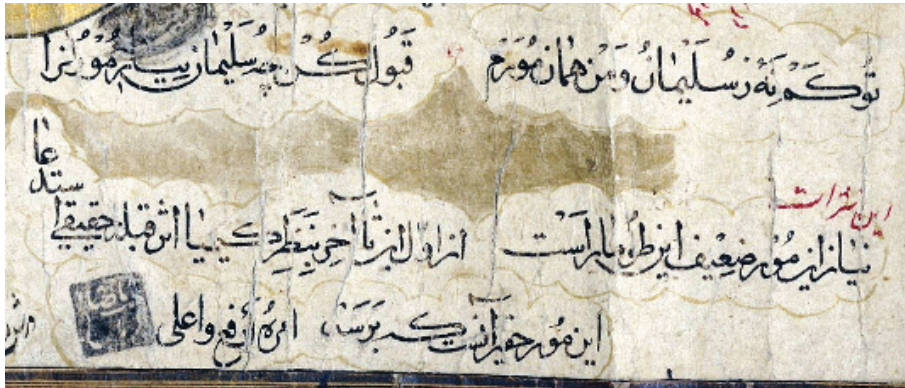 تو کم نه ز سلیمان و من همان مورم قبول کن چو سلیمان نیاز موران را
این نثر است
نیاز این مور ضعیف این طومار است از اول این تا آخر بنظر کیمیا اثر قبله حقیقی استدعا
این مور حقیر آنست که برسد امره ارفع و اعلی